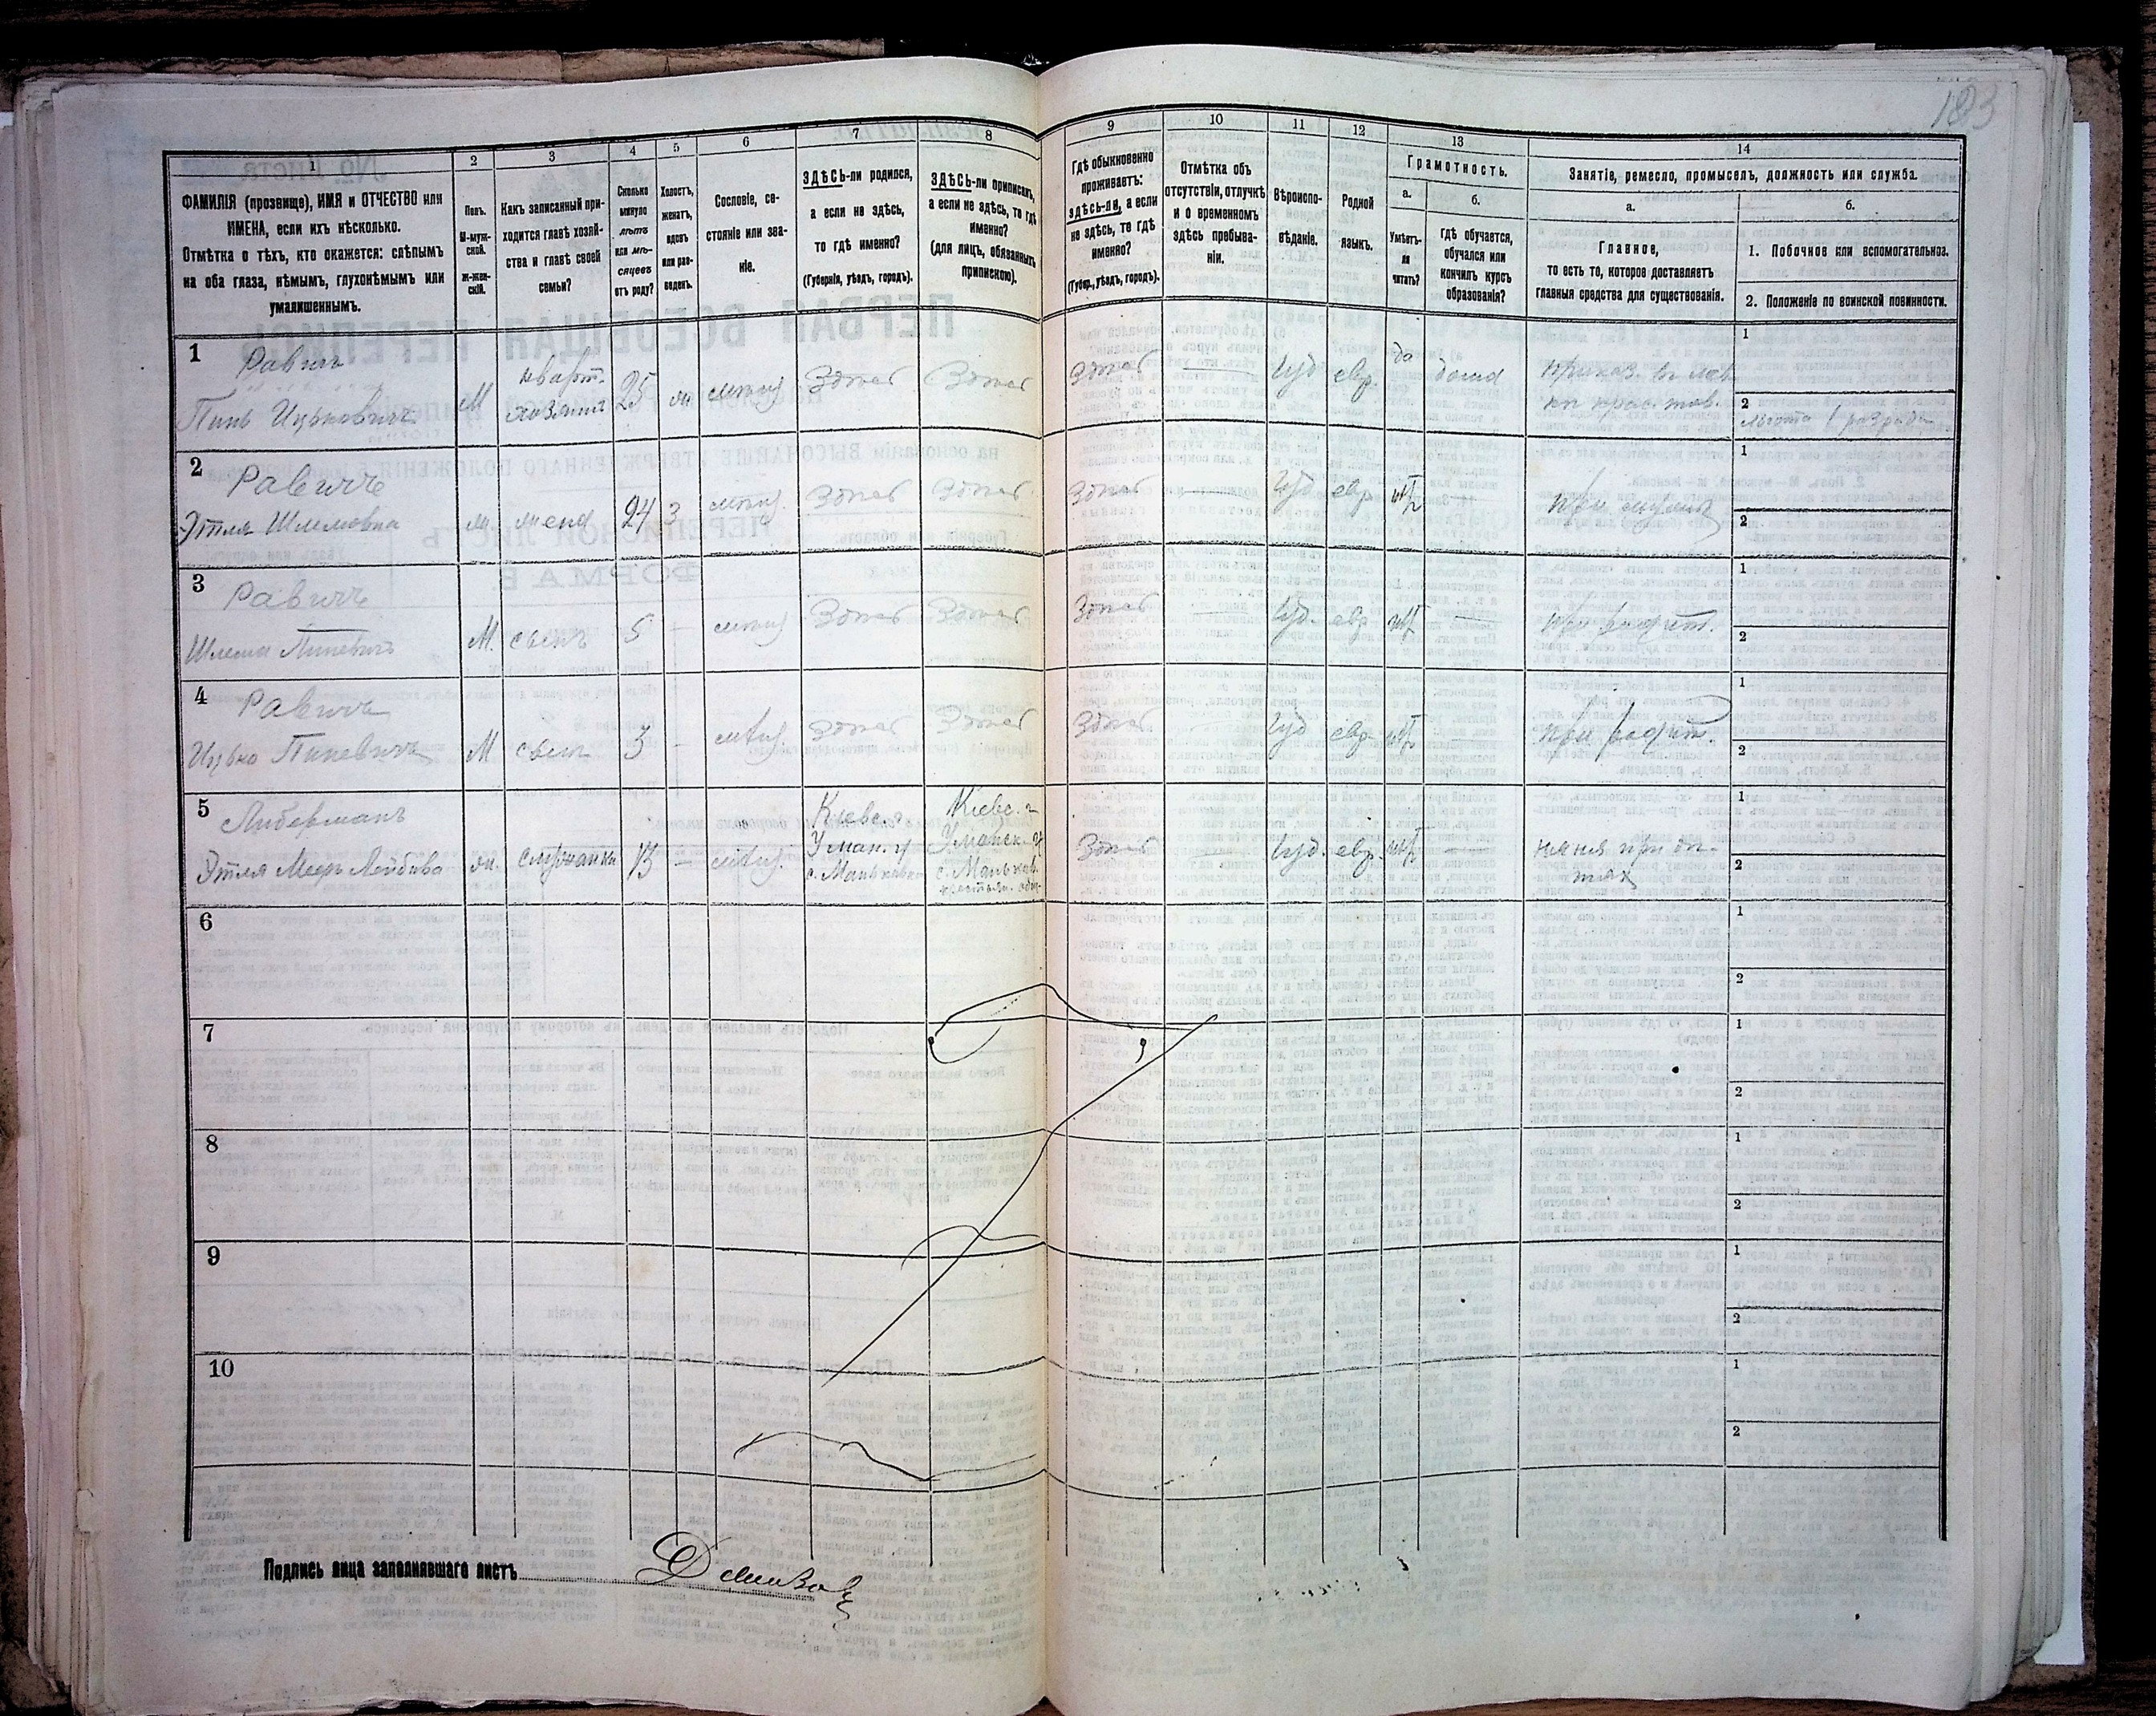 183
1
ФАМИЛІЯ (прозвище), ИМЯ и ОТЧЕСТВО или
ИМЕНА, если ихъ нѣсколько.
Отмѣтка о тѣхъ, кто окажется: слѣпымъ
на оба глаза, нѣмымъ, глухонѣмымъ или
умалишеннымъ.
2
Полъ.
М-муж-
ской.
ж-жен-
скій.
3
Какъ записанный при-
ходится главѣ хозяй-
ства и главѣ своей
семьи?
4
Сколько
минуло
лѣтъ
или мѣ-
сяцевъ
отъ роду?
5
Холостъ,
женатъ,
вдовъ
или раз-
веденъ.
6
Сословіе, со-
стояніе или зва-
ніе.
7
ЗДѢСЬ-ли родился,
а если не здѣсь,
то гдѣ именно?
(Губернія, уѣздъ, городъ).
8
ЗДѢСЬ-ли приписанъ,
а если не здѣсь, то гдѣ
именно?
(для лицъ, обязанныхъ
припискою).
9
Гдѣ обыкновенно
проживаетъ:
здѣсь-ли, а если
не здѣсь, то гдѣ
именно?
(Губер., уѣздъ, городъ).
10
Отмѣтка объ
отсутствіи, отлучкѣ
и о временномъ
здѣсь пребыва-
ніи.
11
Вѣроиспо-
вѣданіе.
12
Родной
языкъ.
13
Грамотность.
а.
Умѣетъ-
ли
читать?
б.
Гдѣ обучается,
обучался или
кончилъ курсъ
образованія?
14
Занятіе, ремесло, промыселъ, должность или служба.
а.
Главное,
то есть то, которое доставляетъ
главныя средства для существованія.
б.
1. Побочное или вспомогательное.
2. Положеніе по воинской повинности.
1
Равичъ
Пинь Ицьковичъ
М
кварт.
хозяинъ
25
ж
Здесь
Здесь
Здесь
—
Іуд
евр.
да
дома
приказ. въ лав
кр. тов.
1
2
льгота 1 разряда
2
Равичъ
Этля Шлемовна
ж
жена
24
З
Здесь
Здесь
Здесь
—
Іуд
евр
нѣт
при мужѣ
1
2
3
Равичъ
Шлема Пиневичъ
М.
сынъ
5
—
Здесь
Здесь
Здесь
—
Іуд.
евр
нѣт
—
при родит.
1
2
4
Равичъ
Ицько Пиневичъ
М
сынъ
3
—
Здесь
Здесь
Здесь
—
Іуд
евр
нѣт
—
при родит.
1
2
5
Либерманъ
Этля Меер Лейбова
ж.
служанка
13
—
Кіевс. г
Уман. у
с. Маньковка
Кіевс. г
Уманск. у
с. Маньков.
Здесь
—
Іуд.
евр.
нѣт
—
няня при дѣ-
тях
1
2
6
1
2
7
1
2
8
1
2
9
1
2
10
1
2
Подпись лица заполнявшаго листъ